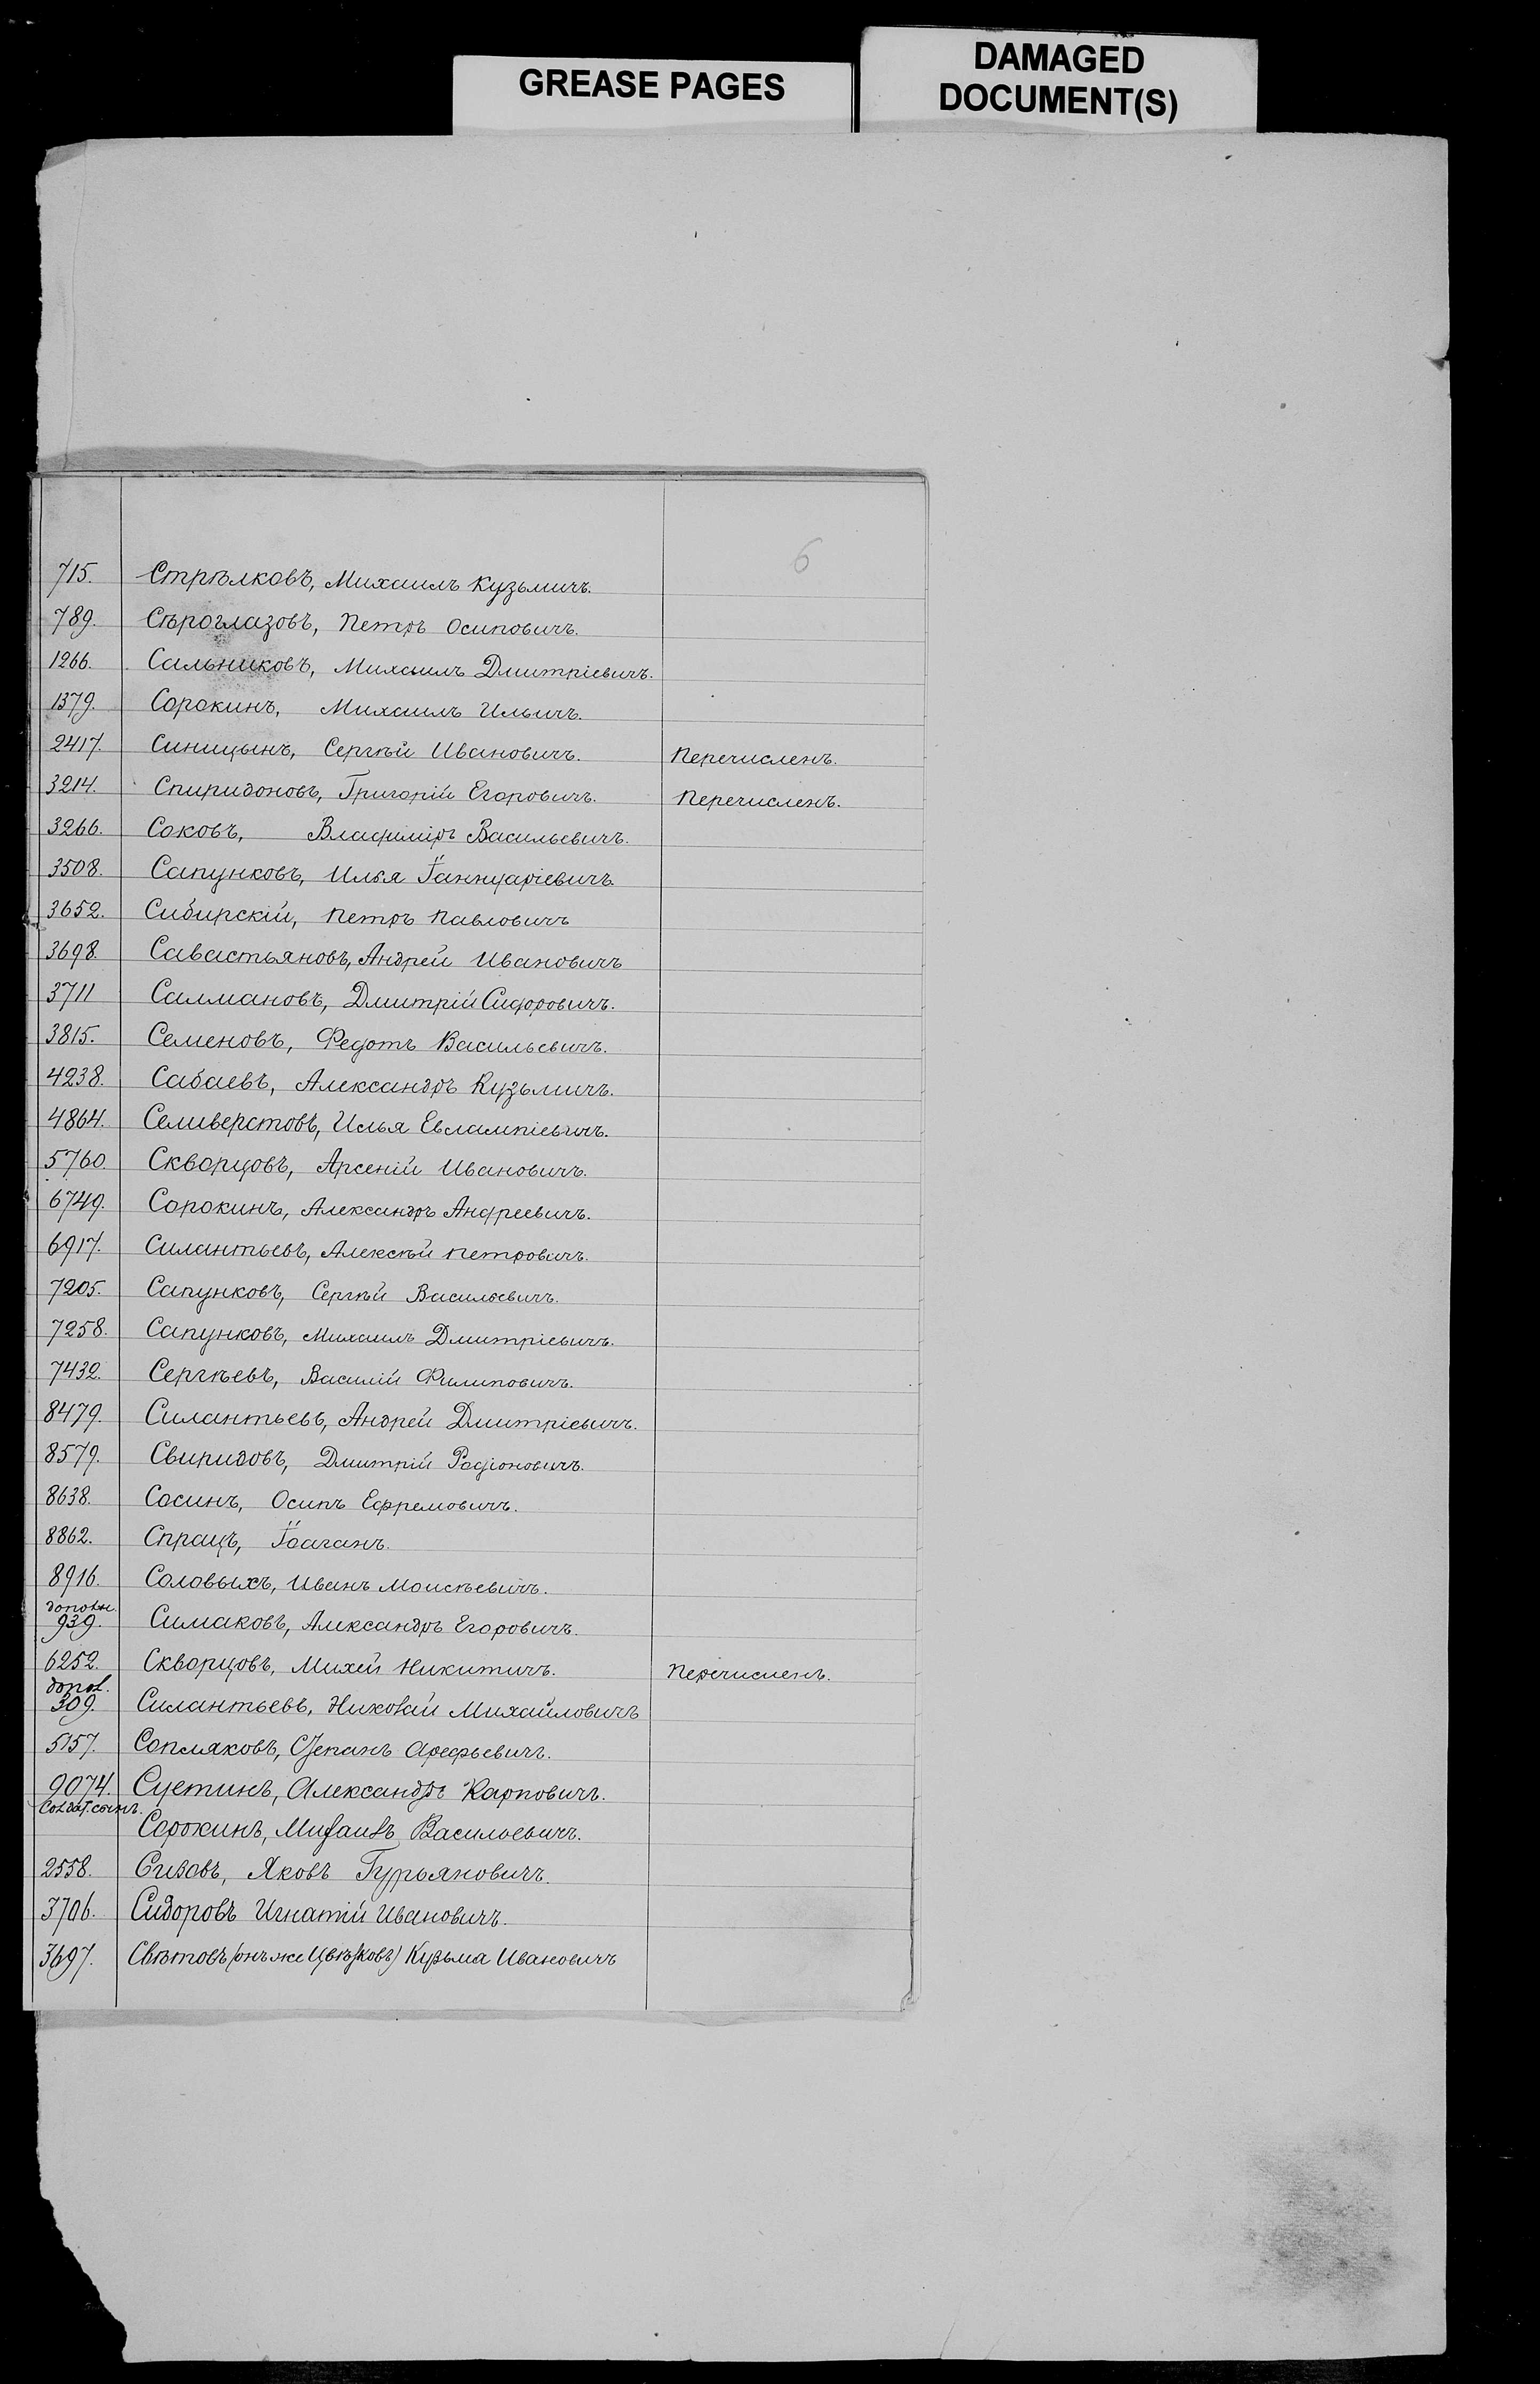 GREASE PAGES
DAMAGED
DOCUMENT(S)
6
715. Стрѣлковъ, Михаилъ Кузьмичъ.
789. Сѣроглазовъ, Петръ Осиповичъ.
1266. Сальниковъ, Михаилъ Дмитріевичъ.
1379. Сорокинъ, Михаилъ Ильичъ.
2417. Синицынъ, Сергѣй Ивановичъ. Перечисленъ.
3214. Спиридоновъ, Григорій Егоровичъ. Перечисленъ.
3266. Соковъ, Владиміръ Васильевичъ.
3508. Сапунковъ, Илья Іаннуаріевичъ.
3652. Сибирскій, Петръ Павловичъ
3698. Савастьяновъ, Андрей Ивановичъ
3711 Салмановъ, Дмитрій Сидоровичъ.
3815. Семеновъ, Федотъ Васильевичъ.
4238. Сабаевъ, Александръ Кузьмичъ.
4864. Селиверстовъ, Илья Евлампіевичъ.
5760. Скворцовъ, Арсеній Ивановичъ.
6749. Сорокинъ, Александръ Андреевичъ.
6917. Силантьевъ, Алексѣй Петровичъ.
7205. Сапунковъ, Сергѣй Васильевичъ.
7258. Сапунковъ, Михаилъ Дмитріевичъ.
7432. Сергѣевъ, Василій Филиповичъ.
8479. Силантьевъ, Андрей Дмитріевичъ.
8579. Свиридовъ, Дмитрій Родіоновичъ.
8638. Сосинъ, Осипъ Ефремовичъ.
8862. Спрацъ, Іоаганъ.
8916. Соловыхъ, Иванъ Моисѣевичъ.
дополн.
939. Симаковъ, Александръ Егоровичъ.
6252. Скворцовъ, Михей Никитичъ. Перечисленъ.
допол.
309. Силантьевъ, Николай Михайловичъ
5157. Сопляковъ, Степанъ Арефьевичъ.
9074. Суетинъ, Александръ Карповичъ.
Солдат. сынъ.
Сорокинъ, Михаилъ Васильевичъ.
2558. Сизовъ, Яковъ Гурьяновичъ.
3706. Сидоровъ Игнатій Ивановичъ.
3697. Свѣтовъ (онъ же Цвѣтковъ) Кузьма Ивановичъ